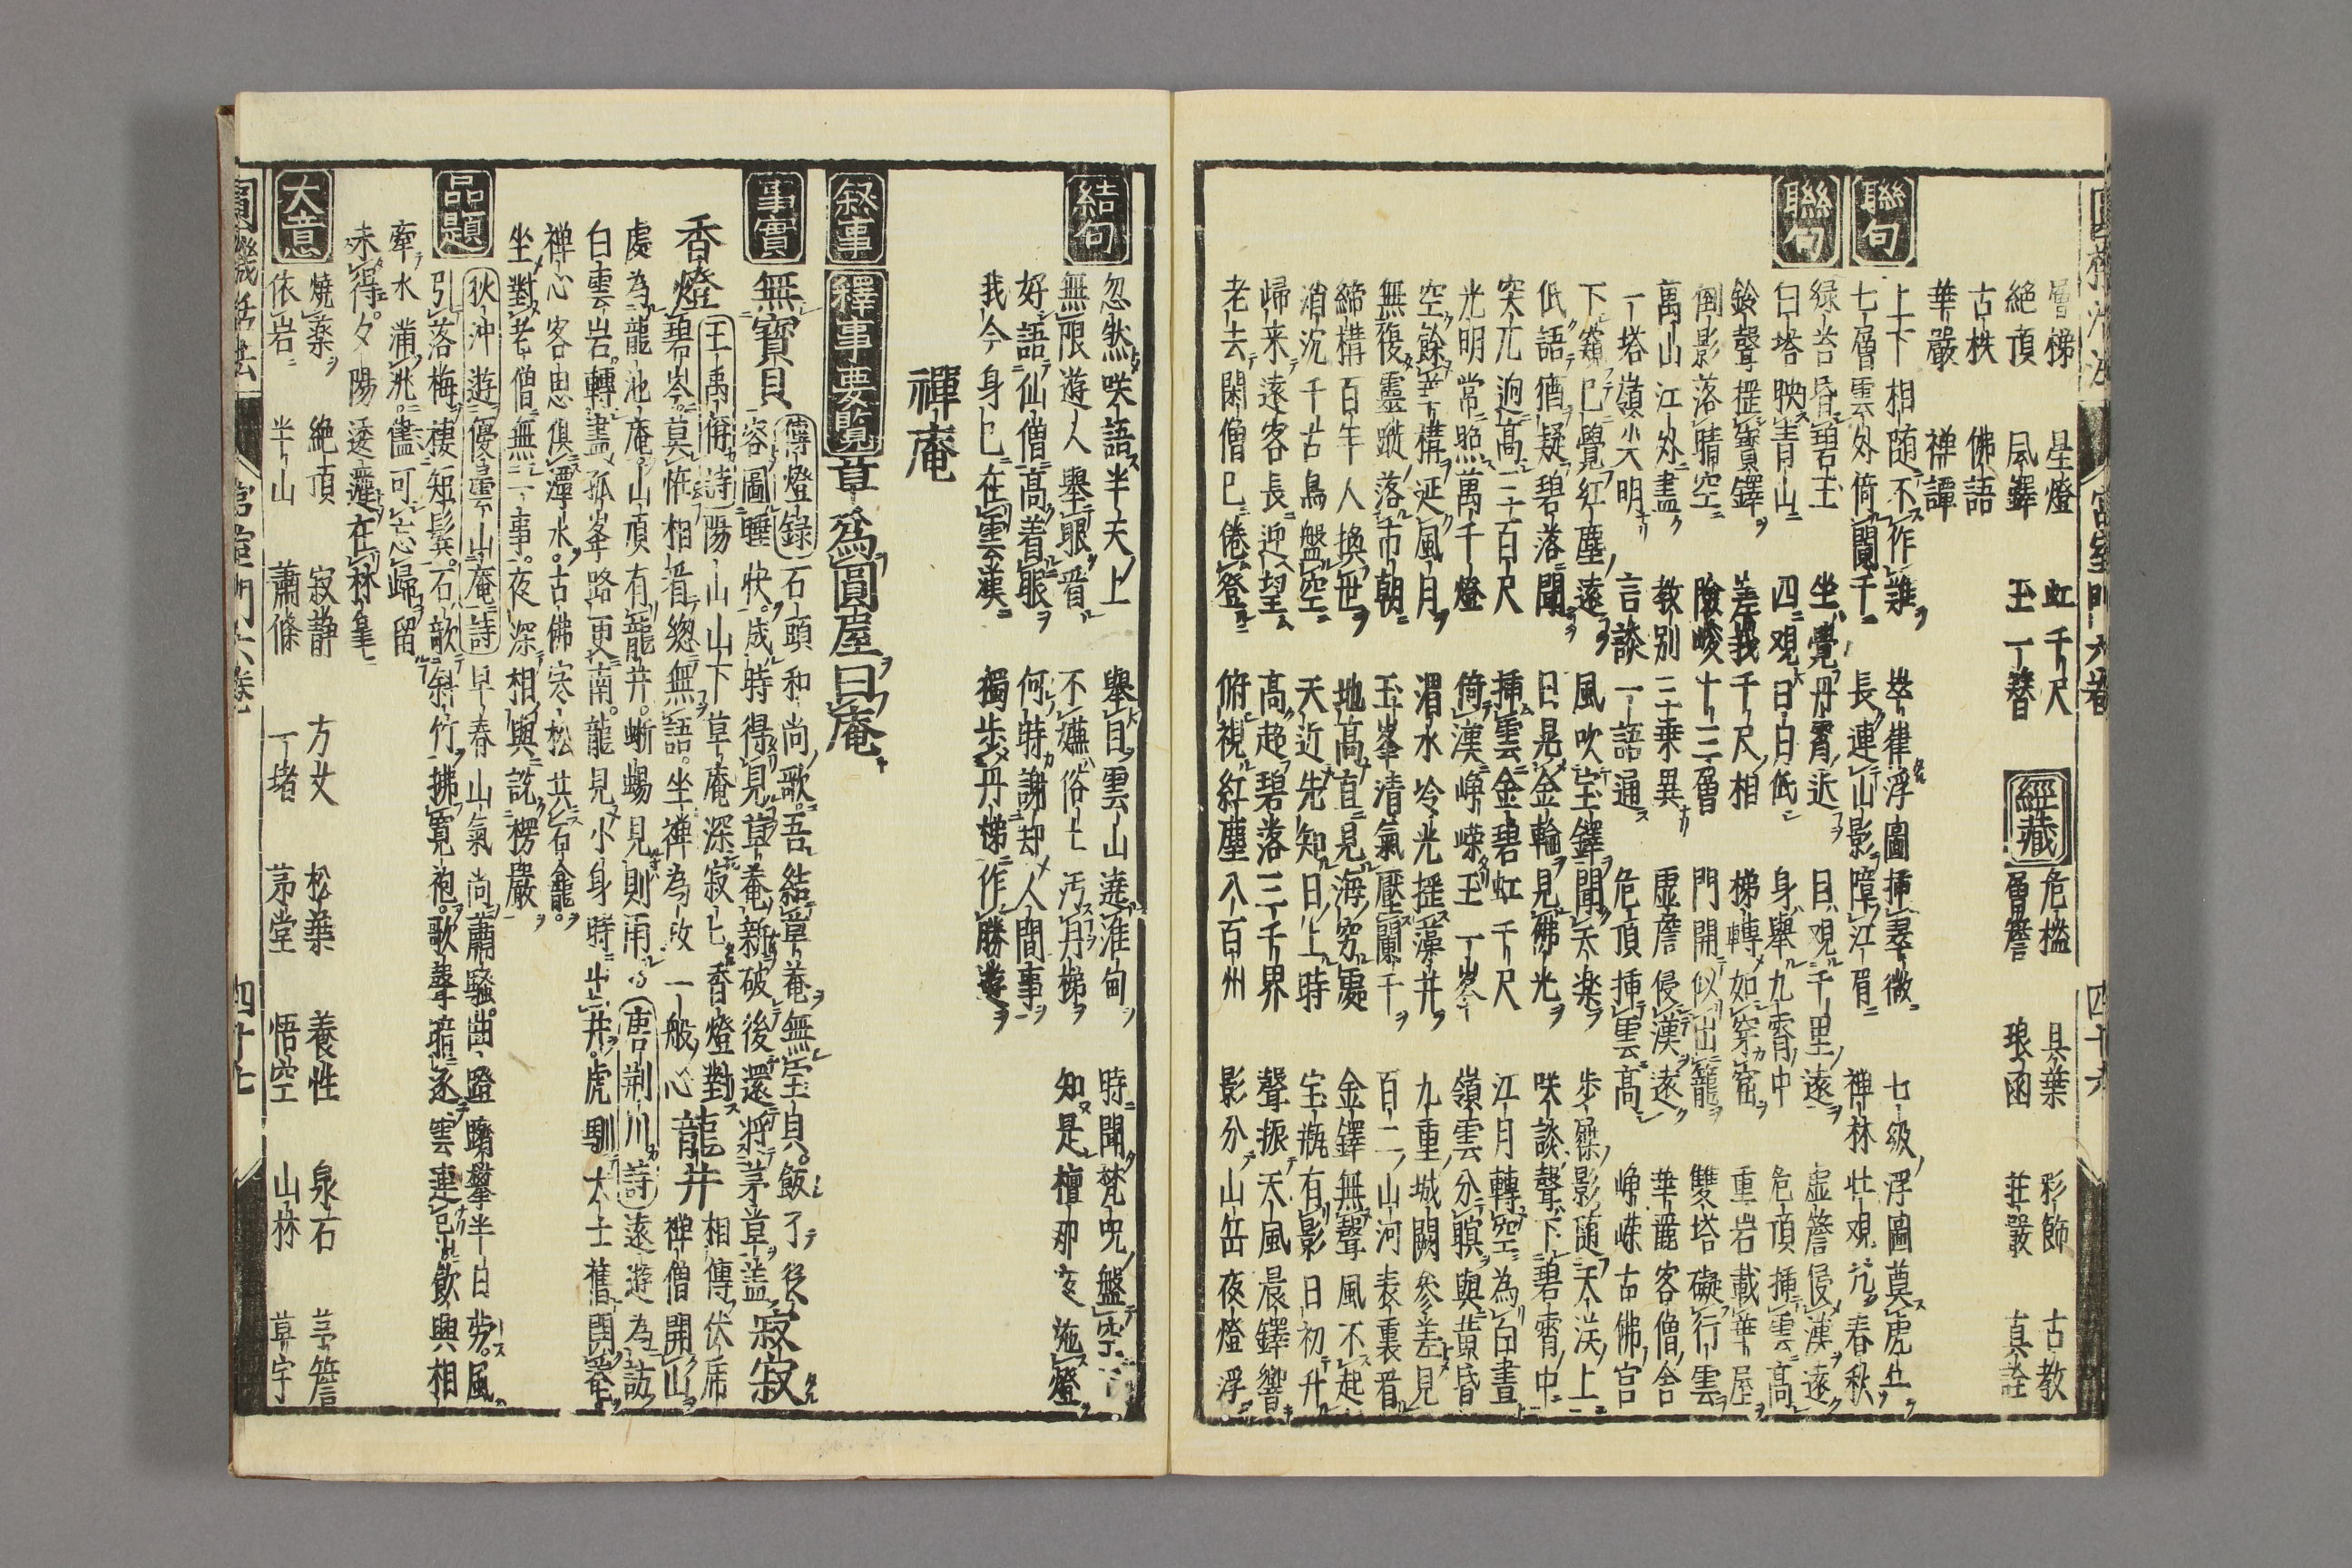 層梯 星燈 虹千尺 危檻 具葉 彩飾 古教
絶頂 風鐸 玉一簪 經藏 層簷 琅函 荘嚴 真詮
古帙 佛語
華嚴 禅譚
聯句 上下相随不作難 嵂崒浮圖挿翠微 七級浮圖奠虎丘
七層雲外倚闌干 長連山影障江眉 禅林壮观允春秋
聯句 緑苔昏碧玉 坐覺丹霄近 目观千里遠 虚簷侵漢遠
白塔映青山 四观日白低 身舉九霄中 危頂挿雲高
鈴聲揺寳鐸 差峩千尺相 梯轉如穿窟 重岩載華屋
倒影落晴空 險峻十三層 門開似出籠 雙塔礙行雲
萬山江外盡 教别三乗異 虚簷侵漢遠 華麗客僧舎
一塔嶺尖明 言談一語通 危頂挿雲高 崢嶸古佛宫
下窺已覺紅塵遠 風吹宝鐸聞天楽 歩屧影随天渓上
低語猶疑碧落聞 日晃金輪見佛光 咲談聲下碧霄中
突兀迥高三百尺 挿雲金碧虹千尺 江月轉空為白晝
光明常照萬千燈 倚漢崢嶸玉一峯 嶺雲分暝與黄昏
空餘華構延風月 湄水冷光揺藻井 九重城闕参差見
無復靈蹤落市朝 玉峯清氣壓闌干 百二山河表裏看
締構百年人換世 地高直見海穷處 金鐸無聲風不起
消沉千古鳥盤空 天近先知日上時 宝瓶有影日初升
歸来遠客長迎望 高超碧落三千界 聲振天風晨鐸響
老去閑僧已倦登 俯視紅塵八百州 影分山岳夜燈浮
結句 忽然咲語半天上 舉目雲山遶淮甸 時聞梵咒盤空下
無限遊人舉眼看 不嫌俗士汚丹梯 知是檀那夜施燈
好語仙僧高着眼 何時謝却人間事
我今身已在雲漢 獨歩丹梯作勝遊
禪庵
叙事 釋事要覽 草為圓屋曰庵
事實 無寳貝 傳燈録 石頭和尚歌 吾結草菴無宝貝 飯了従容圖睡快 成時得見草菴新 破後還将茅草盖 寂寂
香燈 王禹偁詩 陽山山下草庵深 寂々香燈對碧岑 莫怪相看總無語 坐禅為政一般心 龍井 相傳伏席禅僧開山
處為龍池庵 山頂有龍井 蜥蜴見則雨 唐荆川詩 遠遊為訪
白雲岩 轉盡孤峯路更南 龍見小身時出井 虎馴大士舊開菴
禅心客思倶潭水 古佛寒松共石龕
坐對老僧無一事 夜深相與説楞嚴
品題 狄沖遊優曇山庵詩 早春山氣尚蕭騒 曲蹬躋攀半日労 風
引落梅棲短鬓 石欹斜竹拂寛袍 歌聲暗逐雲連已 飲興相
牽水滿洮 儘可忘歸留
未得 夕陽逶邐在林皐
大意 燒藥 絶頂 寂静 方丈 松葉 養性 泉石 茅簷
依岩 半山 蕭條 一堵 茅堂 悟空 山林 草宇
四十七